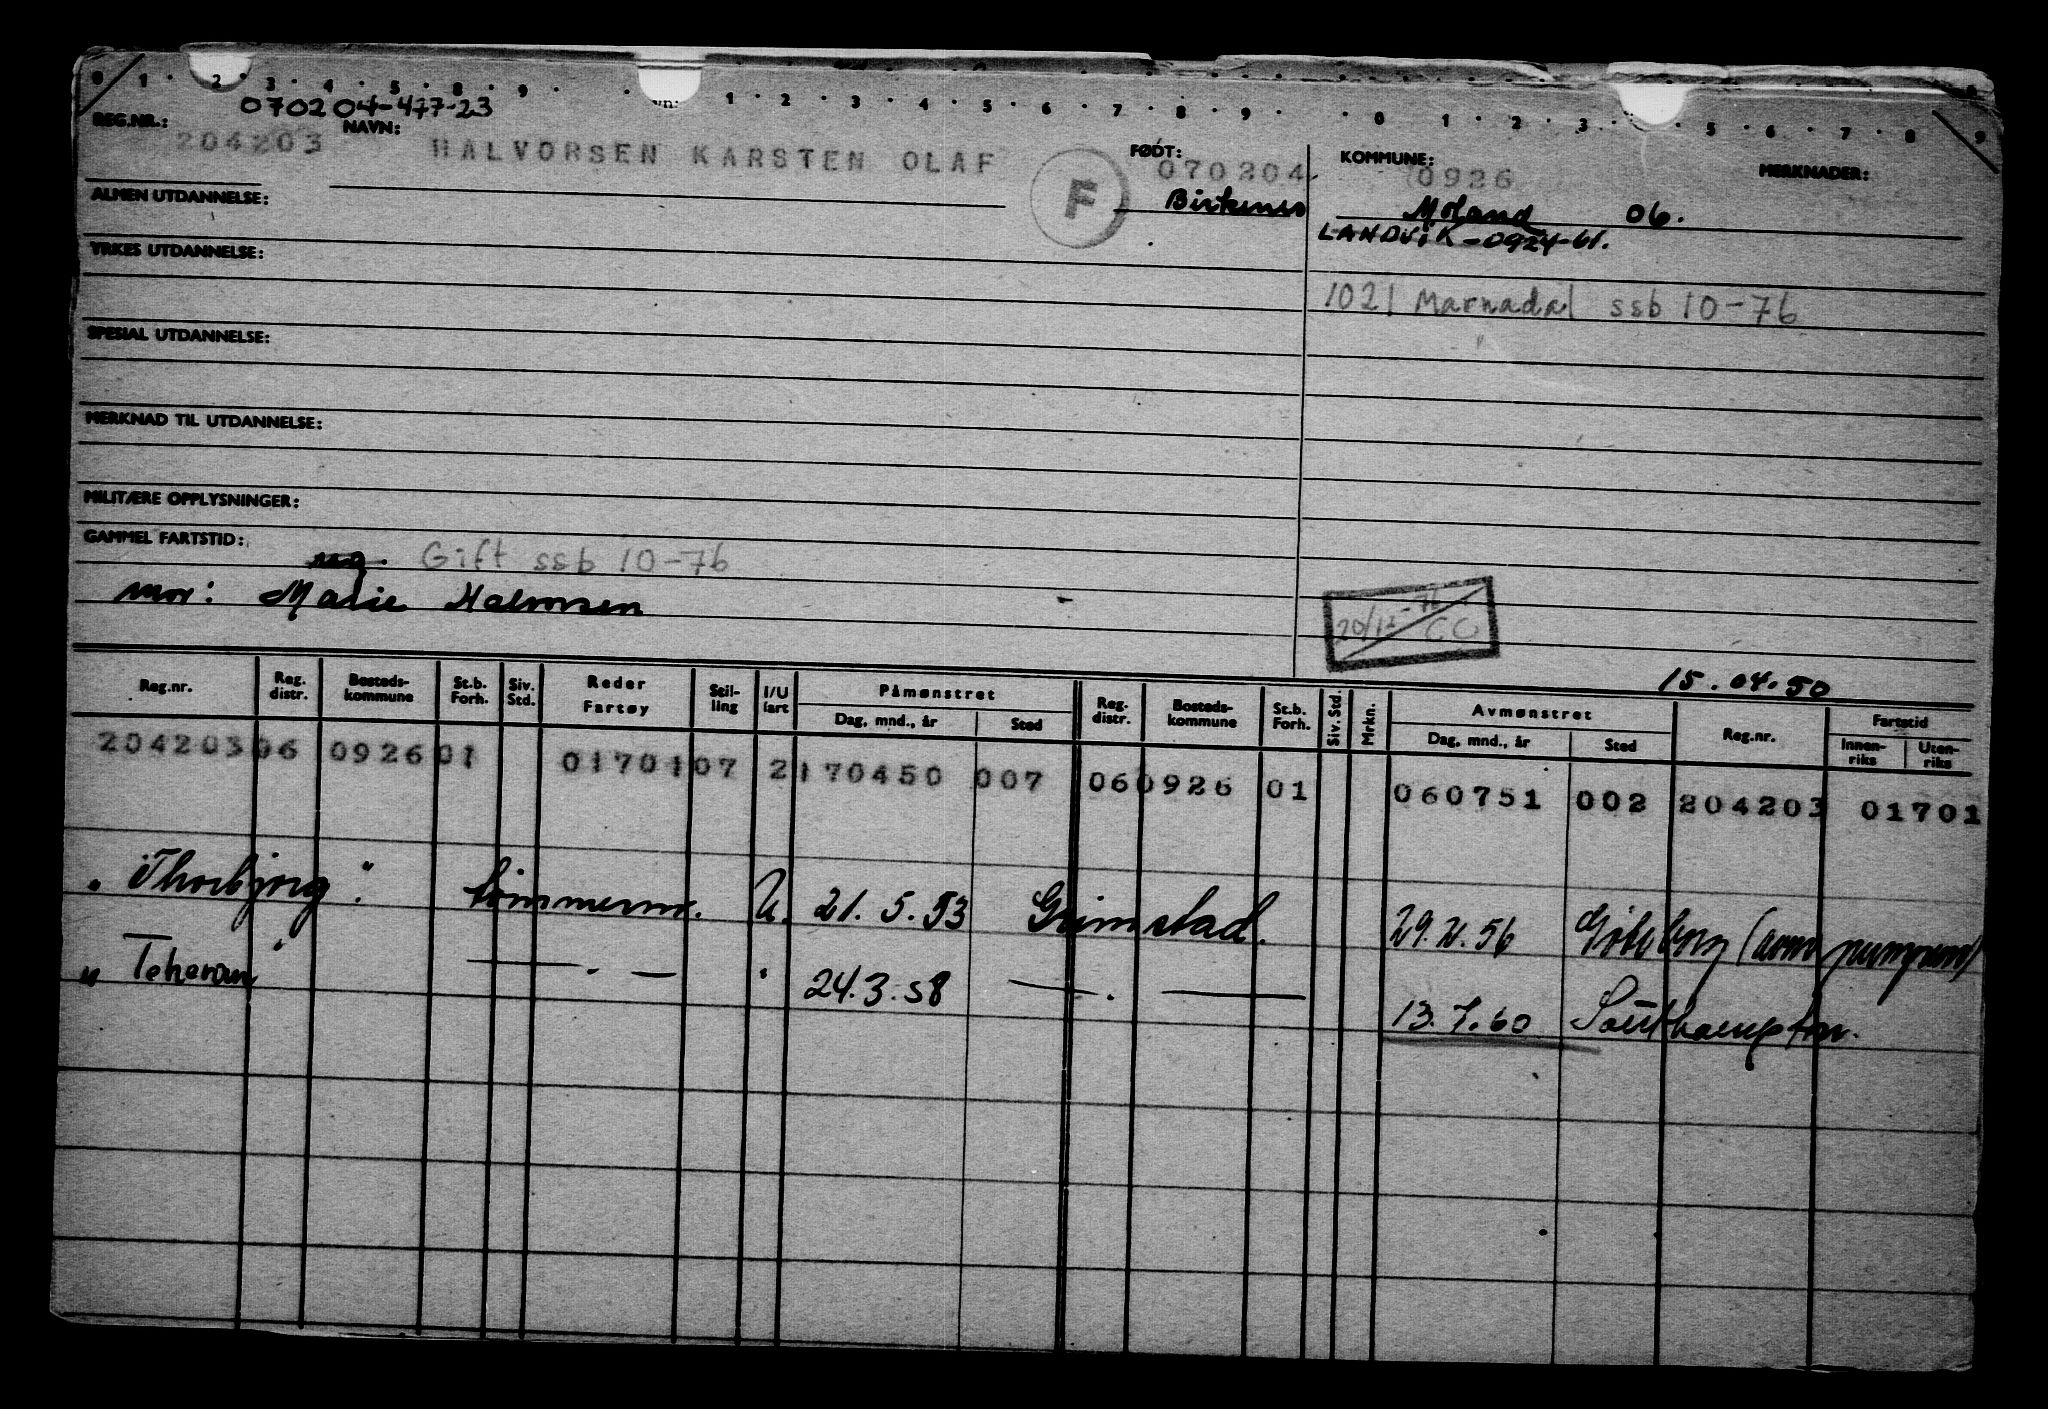 0 1 2 3 4 5 8 9 1 2 3 4 5 6 7 8 9 0 1 2 3 5 6 7 8 9
070204-477-23
REG.NR.: NAVN: FØDT: KOMMUNE: MERKNADER:
204203 HALVORSEN KARSTEN OLAF F 070204 0926
Birkenes Moland 06.
ALMEN UTDANNELSE:
LANDVIK-0924-61.
YRKES UTDANNELSE:
1021 Marnadal ssb 10-76
SPESIAL UTDANNELSE:
MERKNAD TIL UTDANNELSE:
MILITÆRE OPPLYSNINGER:
GAMMEL FARTSTID:
ug. Gift ssb 10-76
mor: Marie Halvorsen
20/12-76 CC
15.04.50
Reg.nr. Reg. distr. Bosteds-kommune St.b. Forh. Siv. Std. Reder Fartøy Stil-ling I/U fart Påmønstret Dag, mnd., år Sted Reg. distr. Bosteds-kommune St.b. Forh. Siv. Std. Mrkn. Avmønstret Dag, mnd., år Sted Reg.nr. Fartstid Innen-riks Uten-riks
204203 06 0926 01 01701 07 2 170450 007 06 0926 01 060751 002 204203 01701
"Thorbjørg". tømmerm. U. 21.5.53 Grimstad. 29.2.56 Göteborg
"Teheran" — . — " 24.3.58 — . — 13.7.60 Southampton.